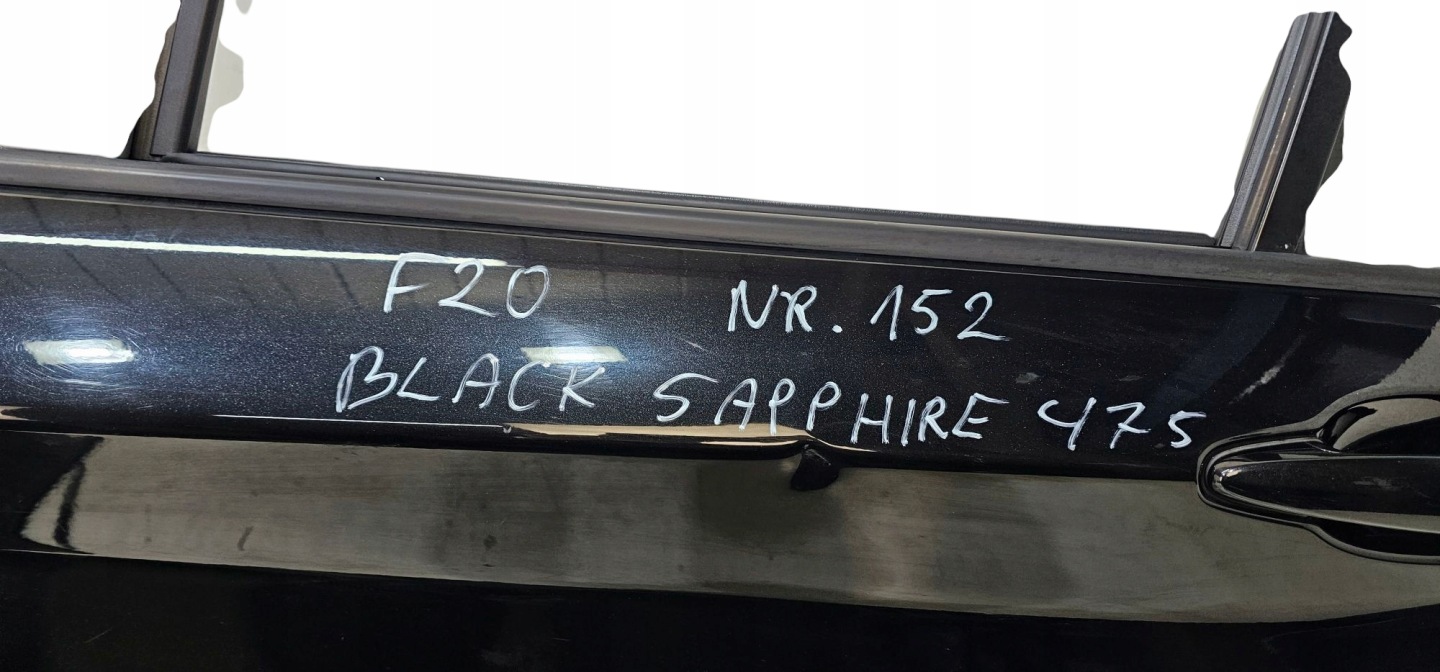 F20 NR. 152
BLACK SAPPHIRE 475